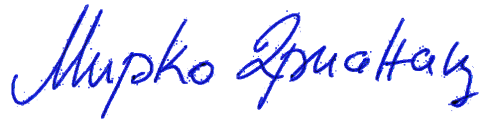 Мирко Грманац